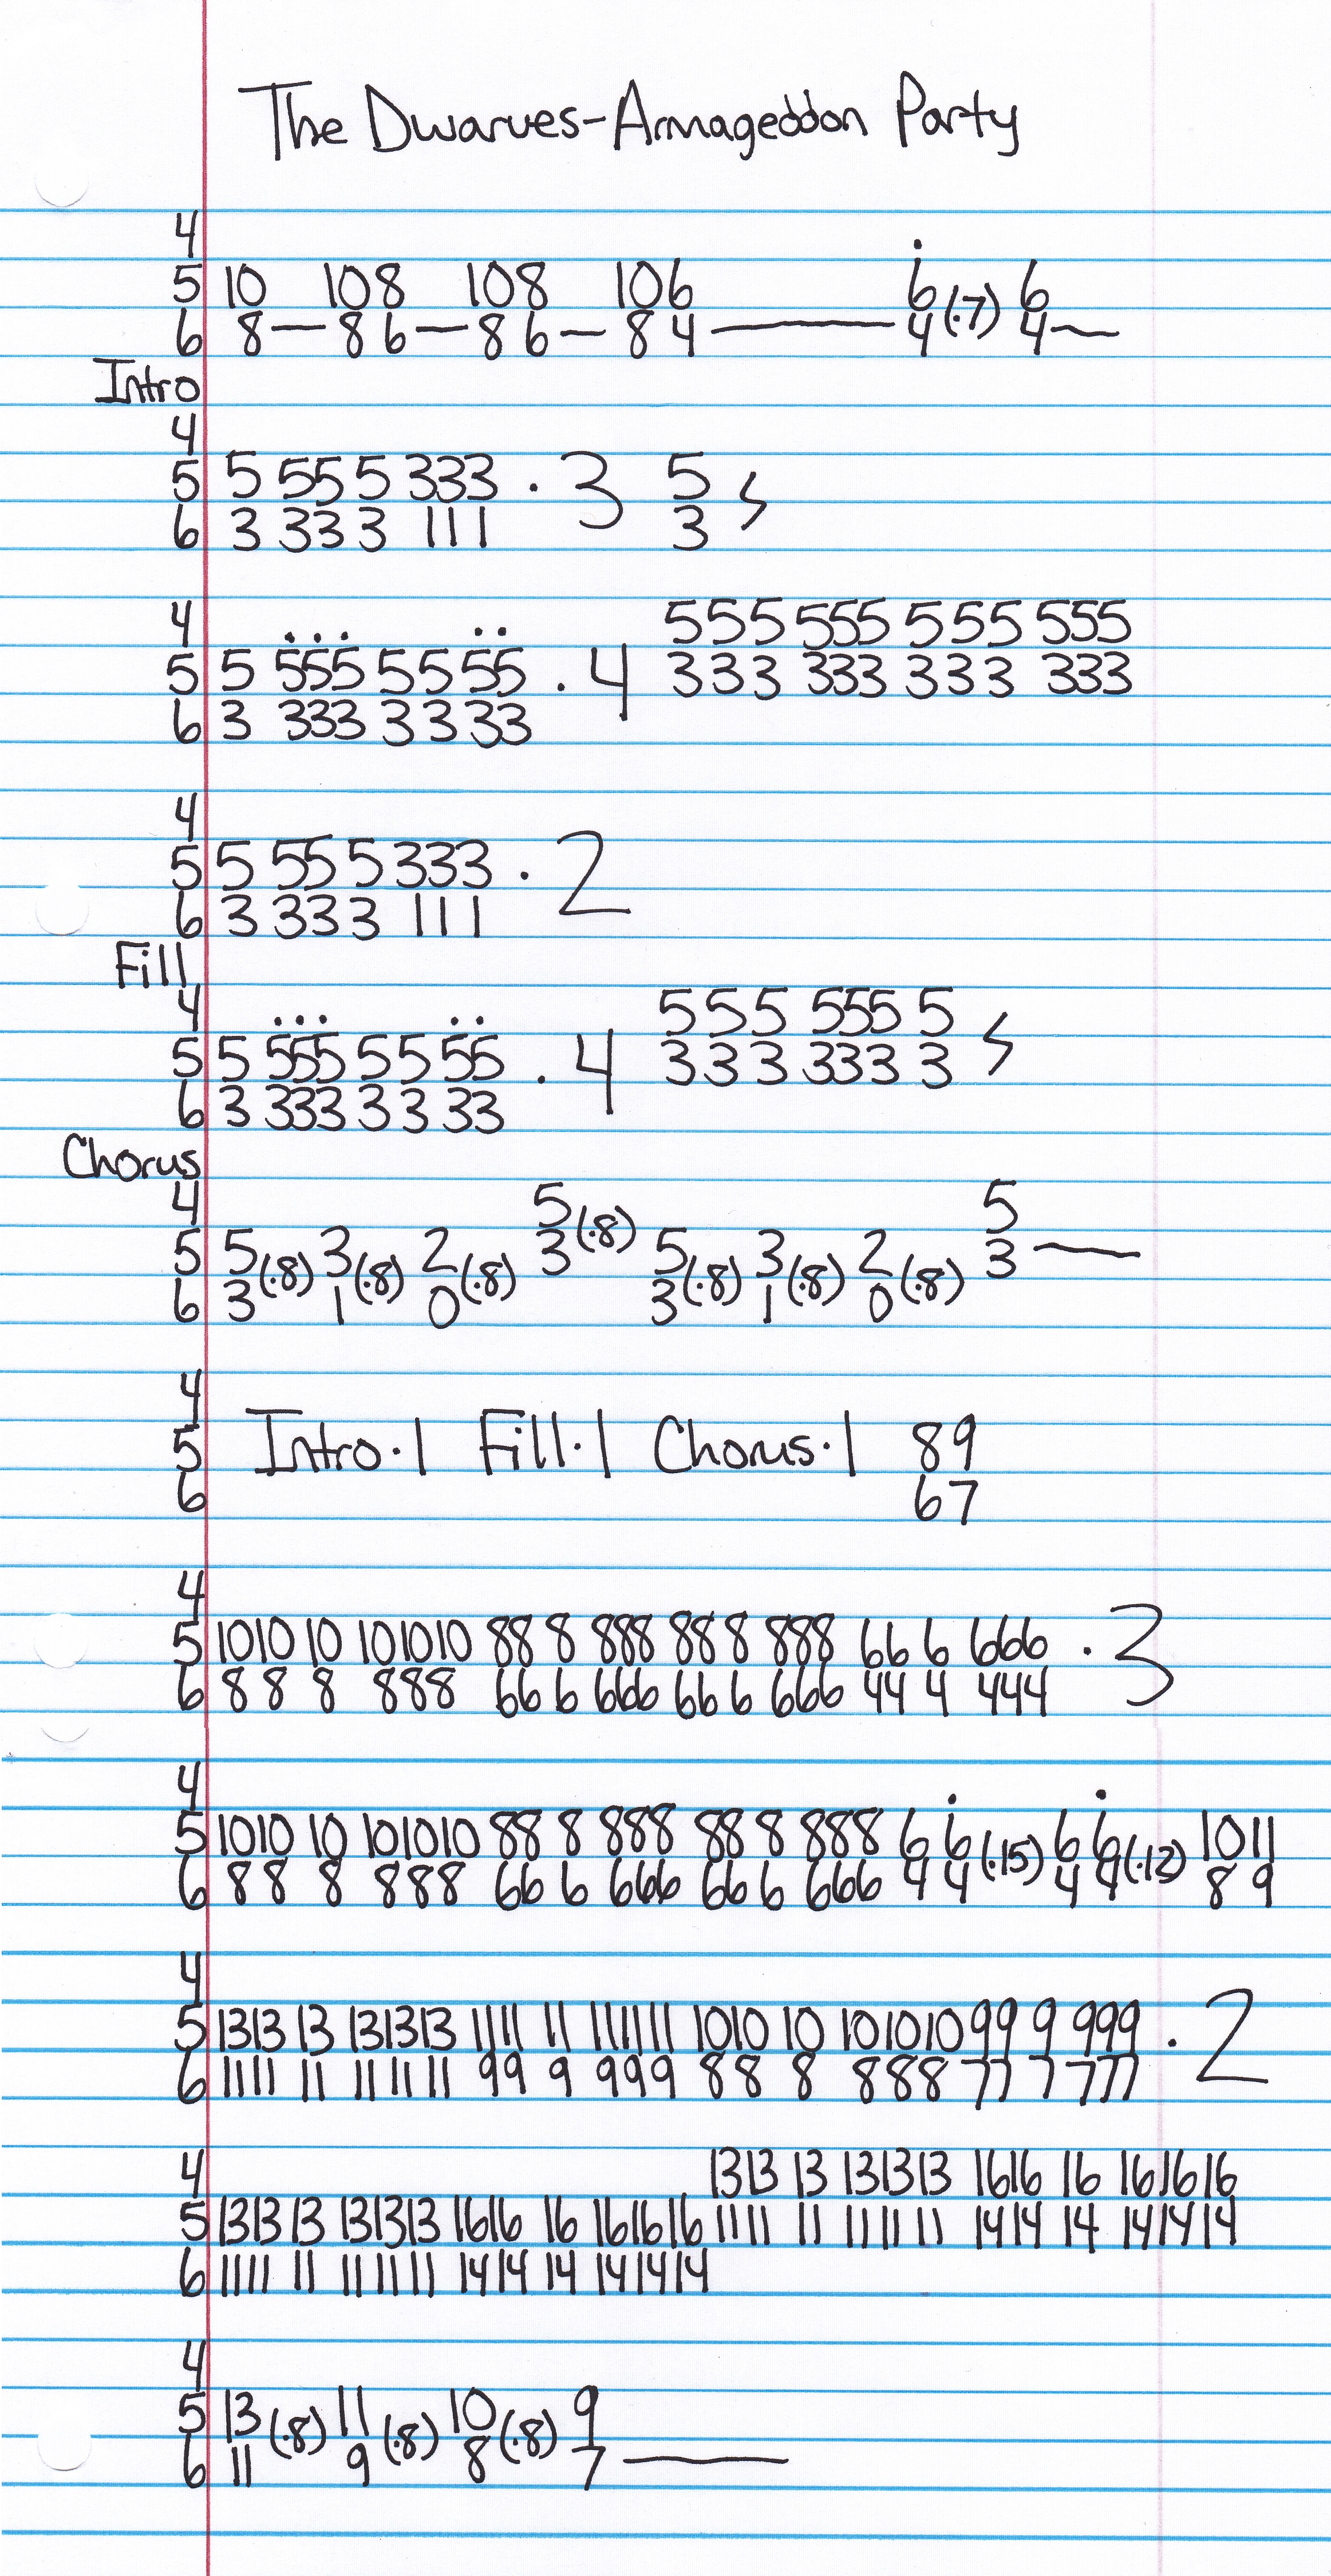 The Dwarves-Armageddon Party
4
5 10 108 108 106 6 (·7) 6
6 8—86—86—84—— 4 4—
Intro
4
5 5 55 5 333 · 3 5
6 3 33 3 111 3
4 555 555 555 555
5 5 555 5 5 55 · 4 333 333 333 333
6 3 333 3 3 33
4
5 5 55 5 333 · 2
6 3 33 3 111
Fill
4 555 555 5
5 5 555 5 5 55 · 4 333 333 3
6 3 333 3 3 33
Chorus
4 5 (·8) 5
5 5 (·8) 3 (·8) 2 (·8) 3 5 (·8) 3 (·8) 2 (·8) 3 —
6 3 1 0 3 1 0
4
5 Intro·1 Fill·1 Chorus·1 89
6 67
4
5 1010 10 101010 88 8 888 88 8 888 66 6 666 · 3
6 88 8 888 66 6 666 66 6 666 44 4 444
4
5 1010 10 101010 88 8 888 88 8 888 6 6 (·15) 6 6 (·12) 10 11
6 88 8 888 66 6 666 66 6 666 4 4 4 4 8 9
4
5 1313 13 131313 1111 11 111111 1010 10 101010 99 9 999 · 2
6 1111 11 111111 99 9 999 88 8 888 77 7 777
4 1313 13 131313 1616 16 161616
5 1313 13 131313 1616 16 161616 1111 11 111111 1414 14 141414
6 1111 11 111111 1414 14 141414
4
5 13 (·8) 11 (·8) 10 (·8) 9
6 11 9 8 7 ——